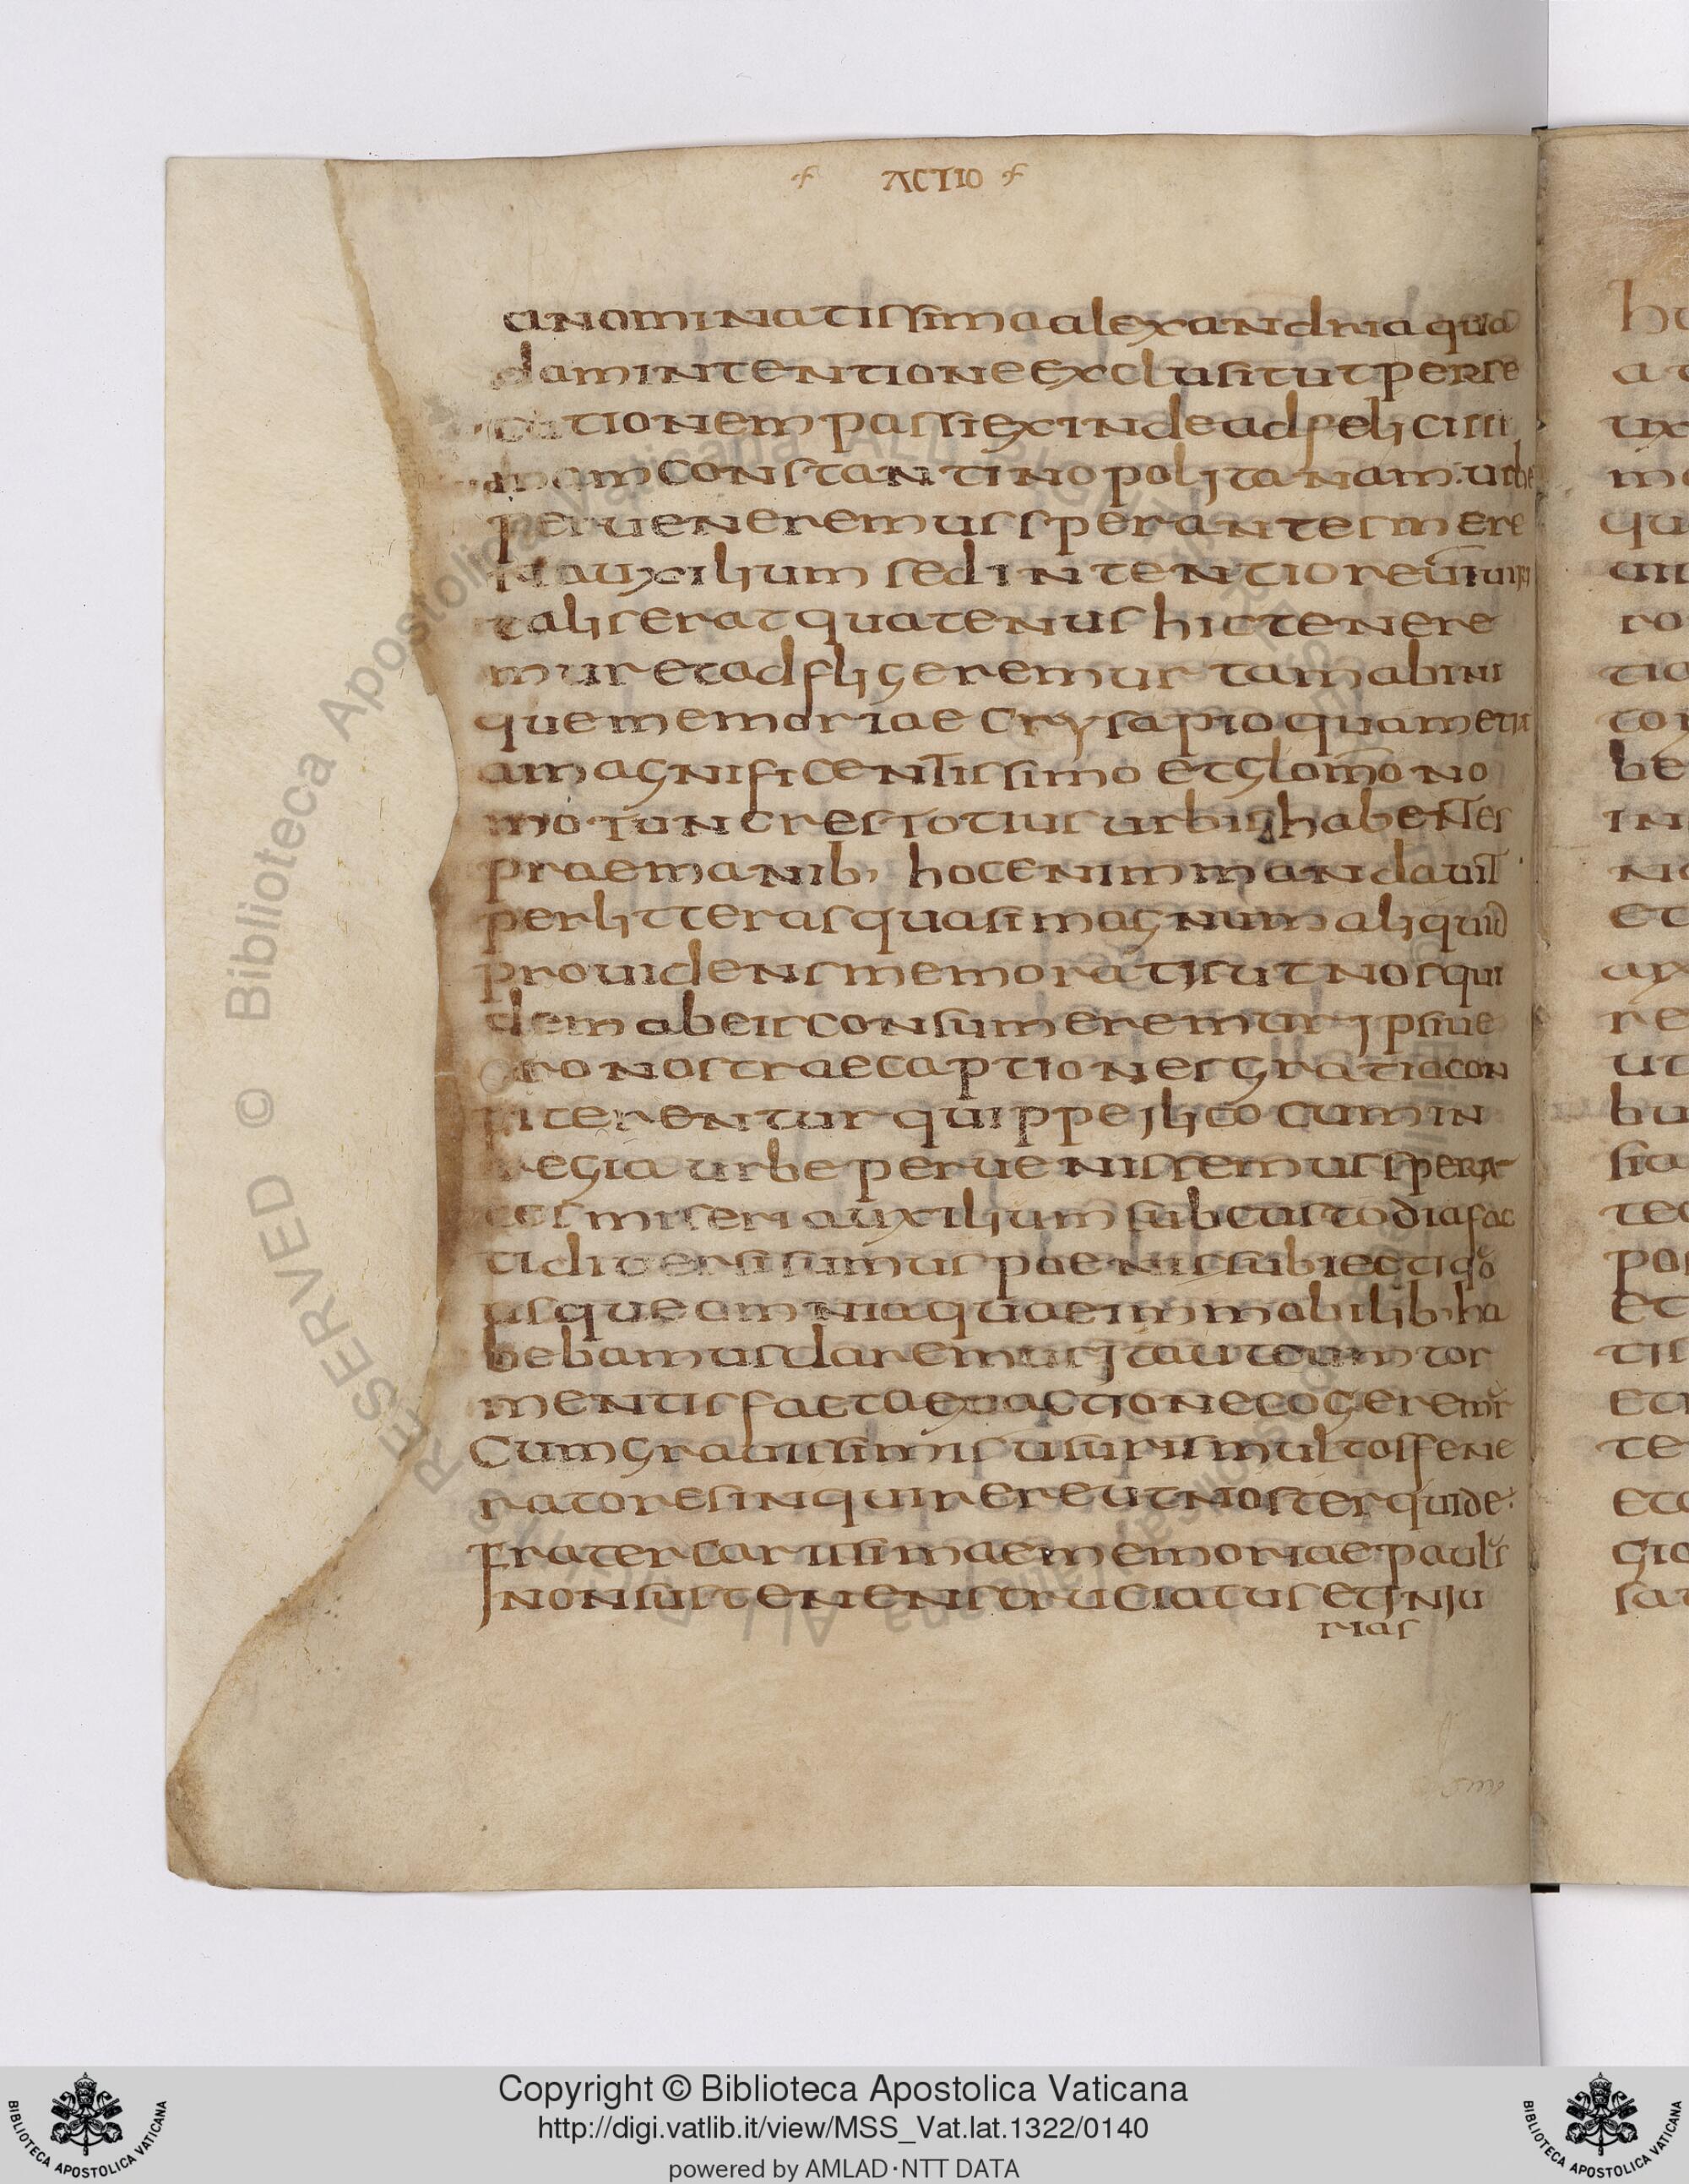 ACTIO
a nominatissima alexandria qua
dam intentione exclusit ut perse
cutionem passi exinde ad felicissi
mam constantinopolitanam urbe
perueneremus sperantes mere
ri auxilium sed intentio reuer̄
talis erat quatenus hic tenere
mur et adfligeremur tam ab ini
quememoriae crysapio quam etia
a magnificentissimo et glomo no
mo tunc res totius urbis habentes
prae manib, hoc enim mandauit
per litteras quasi magnum aliquid
prouidens memoratis ut nos qui
dem ab eis consumeremur ipsi ue
ro nostrae captiones gratia con
piterentur quippe ilico cum in
regia urbe peruenissemus spera
tes miseri auxilium sub custodia fac
ti diuersi sumus poenis subiecti qo
usque omnia quae immobilib, ha
bebamus daremus ita ut cum tor
mentis facta exactione cogeremur
Cum grauissimis usuris multos fene
ratores inquirere ut noster quide
frater carissimae memoriae paulus
non sustenens cruciatus et inju
rias
Copyright © Biblioteca Apostolica Vaticana
http://digi.vatlib.it/view/MSS_Vat.lat.1322/0140
powered by AMLAD·NTT DATA
BIBLIOTECA APOSTOLICA VATICANA
BIBLIOTECA APOSTOLICA VATICANA